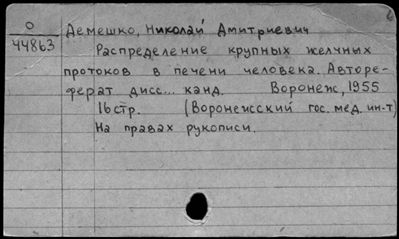 О
44863
Демешко, Николай Дмитриевич
Распределение крупных желчных
протоков в печени человека. Авторе-
ферат дисс... канд. Воронеж, 1955
16стр. (Воронежский гос. мед. ин-т)
На правах рукописи.